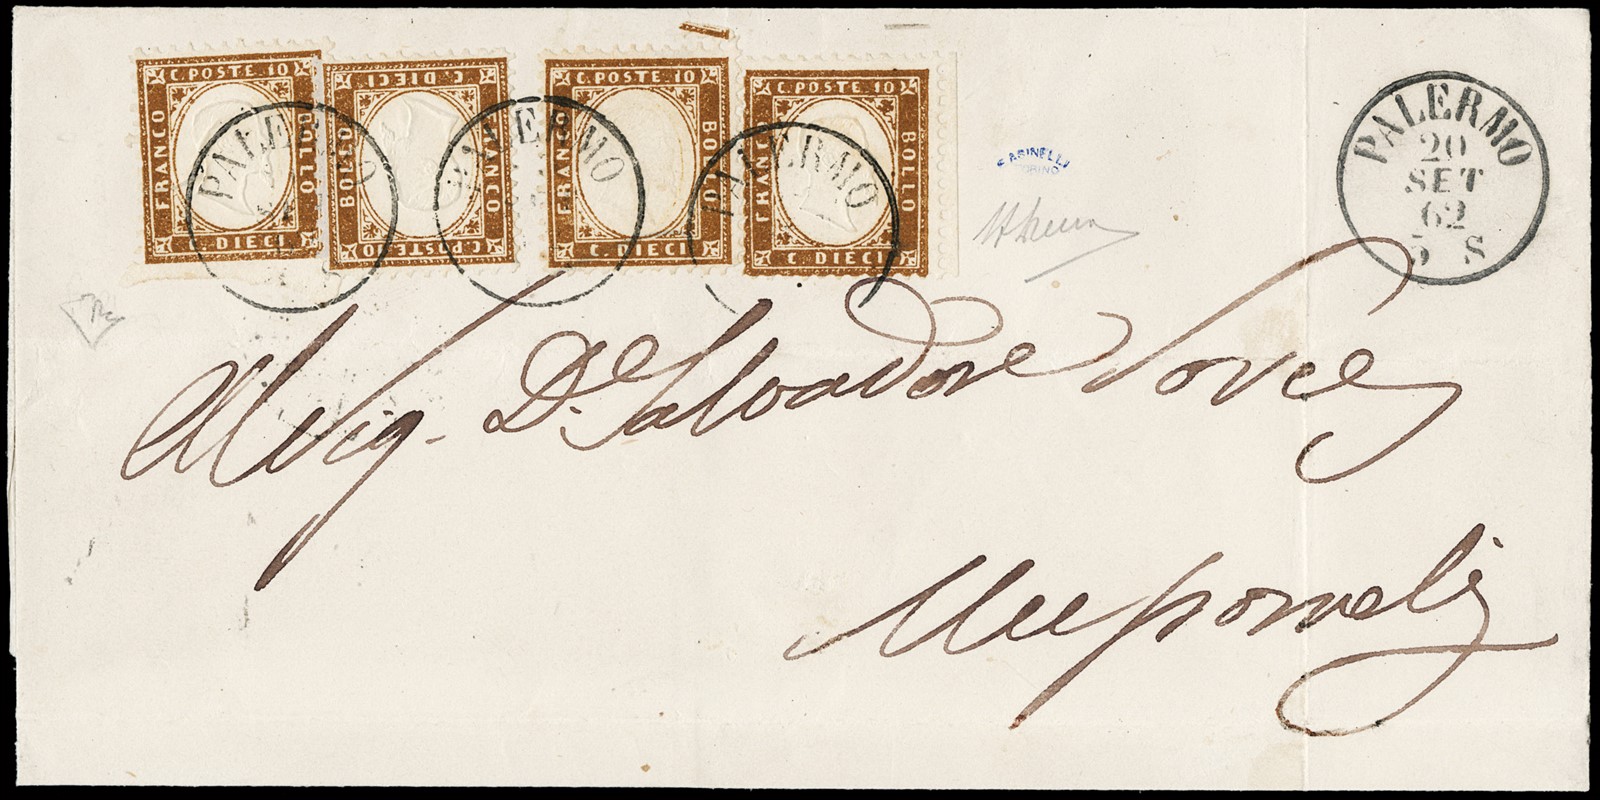 C. POSTE 10
FRANCO
BOLLO
C. DIECI
C. POSTE 10
FRANCO
BOLLO
C. DIECI
C. POSTE 10
FRANCO
BOLLO
C. DIECI
C. POSTE 10
FRANCO
BOLLO
C. DIECI
PALERMO
PALERMO
PALERMO
PALERMO
20
SET
62
5 S
Al Sig. Dr. Salvadore